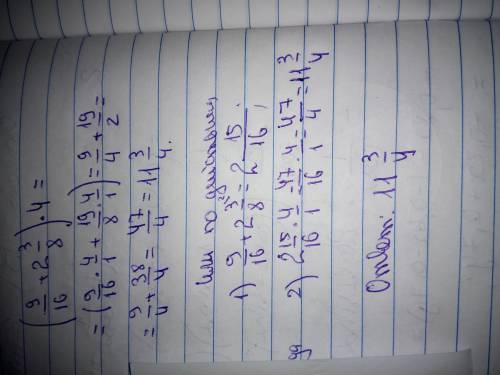 (9/16 + 2 3/8) · 4 =
= (9/16 · 4/1 + 19/8 · 4/1) = 9/4 + 19/2 =
= 9/4 + 38/4 = 47/4 = 11 3/4.
Или по действиям
1) 9/16 + 2 3/8 = 2 15/16,
2) 2 15/16 · 4/1 = 47/16 · 4/1 = 47/4 = 11 3/4
Ответ: 11 3/4